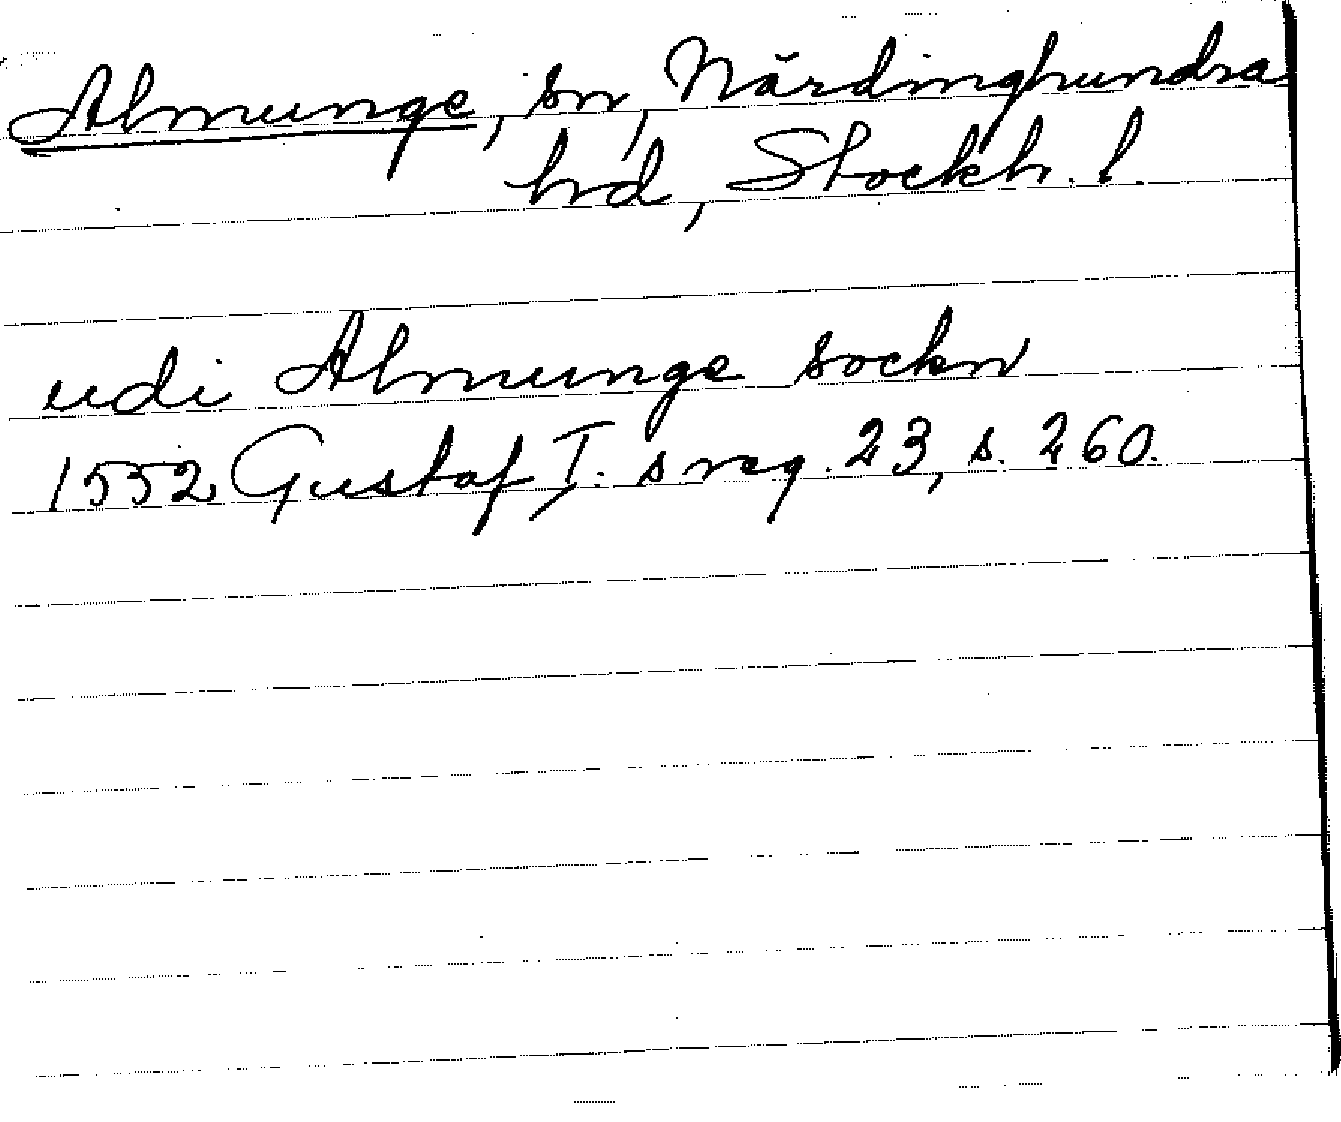 Almunge, sn, Närdinghundra
hd, Stockh. l.
udi Almunge sockn
1552 Gustaf I. s reg. 23, s. 260.